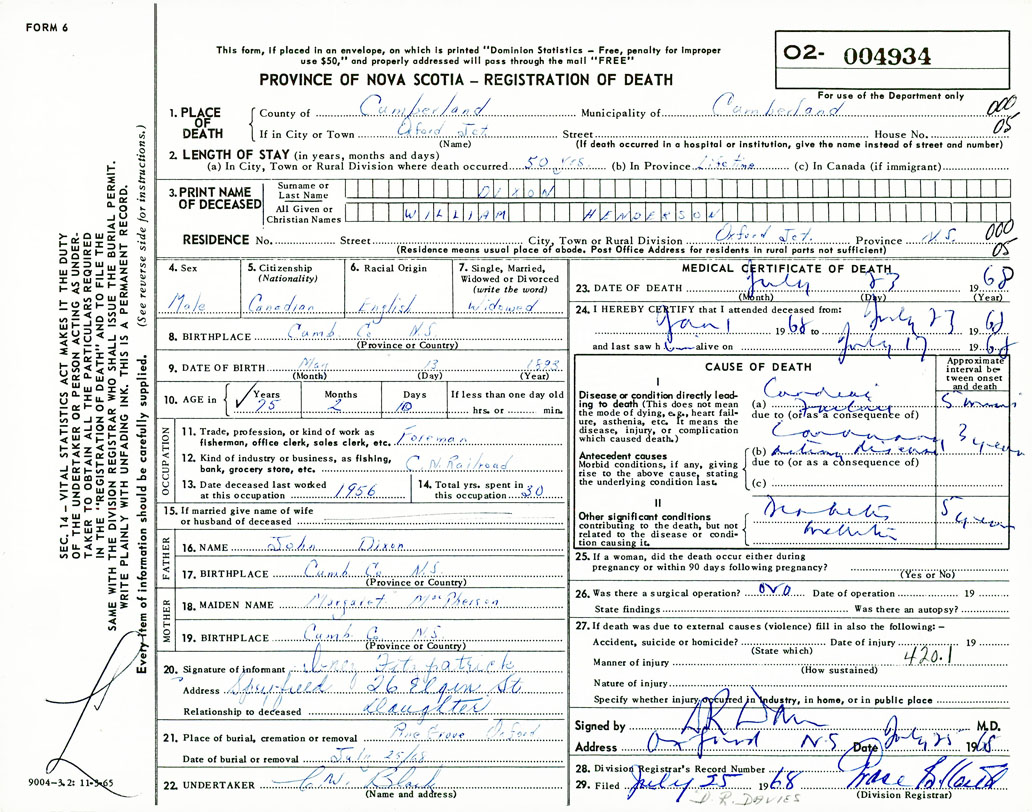 FORM 6
This form, if placed in an envelope, on which is printed "Dominion Statistics – Free, penalty for improper
use $50," and properly addressed will pass through the mail "FREE"
PROVINCE OF NOVA SCOTIA – REGISTRATION OF DEATH
O2- 004934
For use of the Department only
1. PLACE OF DEATH
County of Cumberland Municipality of Cumberland 000
If in City or Town Oxford Jct. Street House No. 05
(Name) (If death occurred in a hospital or institution, give the name instead of street and number)
2. LENGTH OF STAY (in years, months and days)
(a) In City, Town or Rural Division where death occurred 50 yrs. (b) In Province Lifetime (c) In Canada (if immigrant)
3. PRINT NAME OF DECEASED
Surname or Last Name DIXON
All Given or Christian Names WILLIAM HENDERSON
RESIDENCE No. Street City, Town or Rural Division Oxford Jct. Province N.S. 000
(Residence means usual place of abode. Post Office Address for residents in rural parts not sufficient) 05
4. Sex
Male
5. Citizenship
(Nationality)
Canadian
6. Racial Origin
English
7. Single, Married,
Widowed or Divorced
(write the word)
Widowed
8. BIRTHPLACE Cumb. Co. N.S.
(Province or Country)
9. DATE OF BIRTH May 13 1893
(Month) (Day) (Year)
10. AGE in Years Months Days If less than one day old
75 2 10 hrs. or min.
OCCUPATION
11. Trade, profession, or kind of work as
fisherman, office clerk, sales clerk, etc. Foreman
12. Kind of industry or business, as fishing,
bank, grocery store, etc. C.N. Railroad
13. Date deceased last worked
at this occupation 1956
14. Total yrs. spent in
this occupation 30
15. If married give name of wife
or husband of deceased
FATHER
16. NAME John Dixon
17. BIRTHPLACE Cumb. Co. N.S.
(Province or Country)
MOTHER
18. MAIDEN NAME Margaret MacPherson
19. BIRTHPLACE Cumb. Co. N.S.
(Province or Country)
20. Signature of informant Fitzpatrick
Address Spryfield 26 Elgin St
Relationship to deceased Daughter
21. Place of burial, cremation or removal Pine Grove Oxford
Date of burial or removal July 25/68
22. UNDERTAKER C.W. Black
(Name and address)
MEDICAL CERTIFICATE OF DEATH
23. DATE OF DEATH July 23 1968
(Month) (Day) (Year)
24. I HEREBY CERTIFY that I attended deceased from:
Jan 1 1968 to July 23 1968
and last saw him alive on July 17 1968
CAUSE OF DEATH
Approximate
interval be-
tween onset
and death
I
Disease or condition directly lead-
ing to death (This does not mean
the mode of dying, e.g., heart fail-
ure, asthenia, etc. It means the
disease, injury, or complication
which caused death.)
(a) Cardiac Failure 5 mins
due to (or as a consequence of)
Antecedent causes
Morbid conditions, if any, giving
rise to the above cause, stating
the underlying condition last.
(b) Coronary Artery Disease 3 years
due to (or as a consequence of)
(c)
II
Other significant conditions
contributing to the death, but not
related to the disease or condi-
tion causing it.
Diabetes Mellitus 5 years
25. If a woman, did the death occur either during
pregnancy or within 90 days following pregnancy?
(Yes or No)
26. Was there a surgical operation? no Date of operation 19
State findings Was there an autopsy?
27. If death was due to external causes (violence) fill in also the following: –
Accident, suicide or homicide? Date of injury 19
(State which)
Manner of injury 420.1
(How sustained)
Nature of injury
Specify whether injury occurred in Industry, in home, or in public place
Signed by M.D.
Address Oxford N.S. Date July 25 1968
28. Division Registrar's Record Number
29. Filed July 25 1968
(Division Registrar)
D.R. DAVIES
SEC. 14 – VITAL STATISTICS ACT MAKES IT THE DUTY
OF THE UNDERTAKER OR PERSON ACTING AS UNDER-
TAKER TO OBTAIN ALL THE PARTICULARS REQUIRED
IN THE "REGISTRATION OF DEATH" AND TO FILE THE
SAME WITH THE DIVISION REGISTRAR WHO SHALL ISSUE THE BURIAL PERMIT.
WRITE PLAINLY WITH UNFADING INK. THIS IS A PERMANENT RECORD.
Every item of information should be carefully supplied. (See reverse side for instructions.)
9004-3.2: 11-5-65